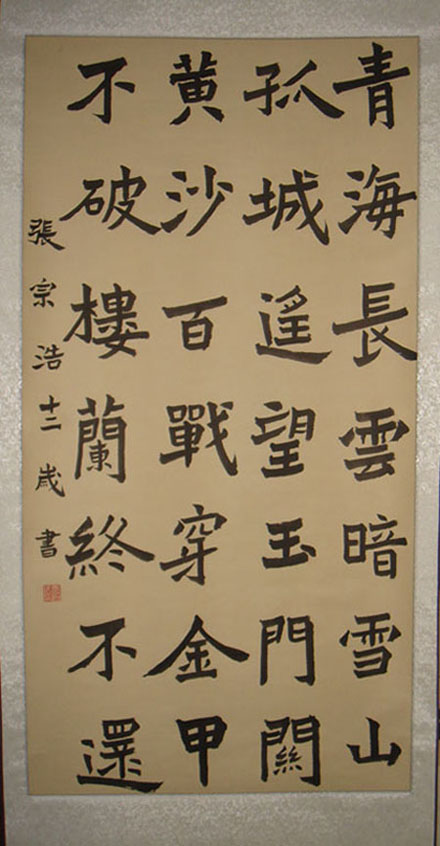 青海長雲暗雪山
孤城遥望玉門関
黄沙百戰穿金甲
不破樓蘭終不還
張宗浩十二歲書